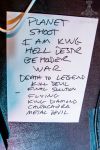 PLANET
SHOOT
I AM KING
HELL DESTR
BE MODER
WAR
DEATH TO LEGEND
KILL DEVIL
FINAL SOLUTION
FLYING
KING DIAMOND
CHURCHBURN
METAL DEVIL